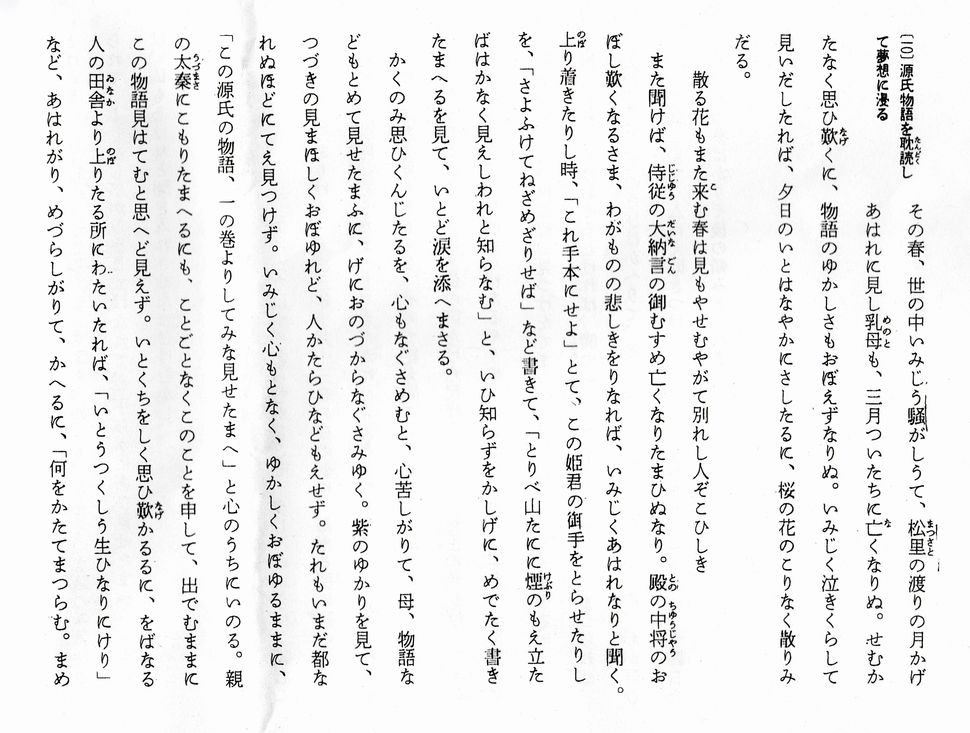 〔一〇〕源氏物語を耽読し
て夢想に浸る
その春、世の中いみじう騒がしうて、松里の渡りの月かげ
あはれに見し乳母も、三月ついたちに亡くなりぬ。せむか
たなく思ひ歎くに、物語のゆかしさもおぼえずなりぬ。いみじく泣きくらして
見いだしたれば、夕日のいとはなやかにさしたるに、桜の花のこりなく散りみ
だる。
散る花もまた来む春は見もやせむやがて別れし人ぞこひしき
また聞けば、侍従の大納言の御むすめ亡くなりたまひぬなり。殿の中将のお
ぼし歎くなるさま、わがものの悲しきをりなれば、いみじくあはれなりと聞く。
上り着きたりし時、「これ手本にせよ」とて、この姫君の御手をとらせたりし
を、「さよふけてねざめざりせば」など書きて、「とりべ山たにに煙のもえ立た
ばはかなく見えしわれと知らなむ」と、いひ知らずをかしげに、めでたく書き
たまへるを見て、いとど涙を添へまさる。
かくのみ思ひくんじたるを、心もなぐさめむと、心苦しがりて、母、物語な
どもとめて見せたまふに、げにおのづからなぐさみゆく。紫のゆかりを見て、
つづきの見まほしくおぼゆれど、人かたらひなどもえせず。たれもいまだ都な
れぬほどにてえ見つけず。いみじく心もとなく、ゆかしくおぼゆるままに、
「この源氏の物語、一の巻よりしてみな見せたまへ」と心のうちにいのる。親
の太秦にこもりたまへるにも、ことごとなくこのことを申して、出でむままに
この物語見はてむと思へど見えず。いとくちをしく思ひ歎かるるに、をばなる
人の田舎より上りたる所にわたいたれば、「いとうつくしう生ひなりにけり」
など、あはれがり、めづらしがりて、かへるに、「何をかたてまつらむ。まめ